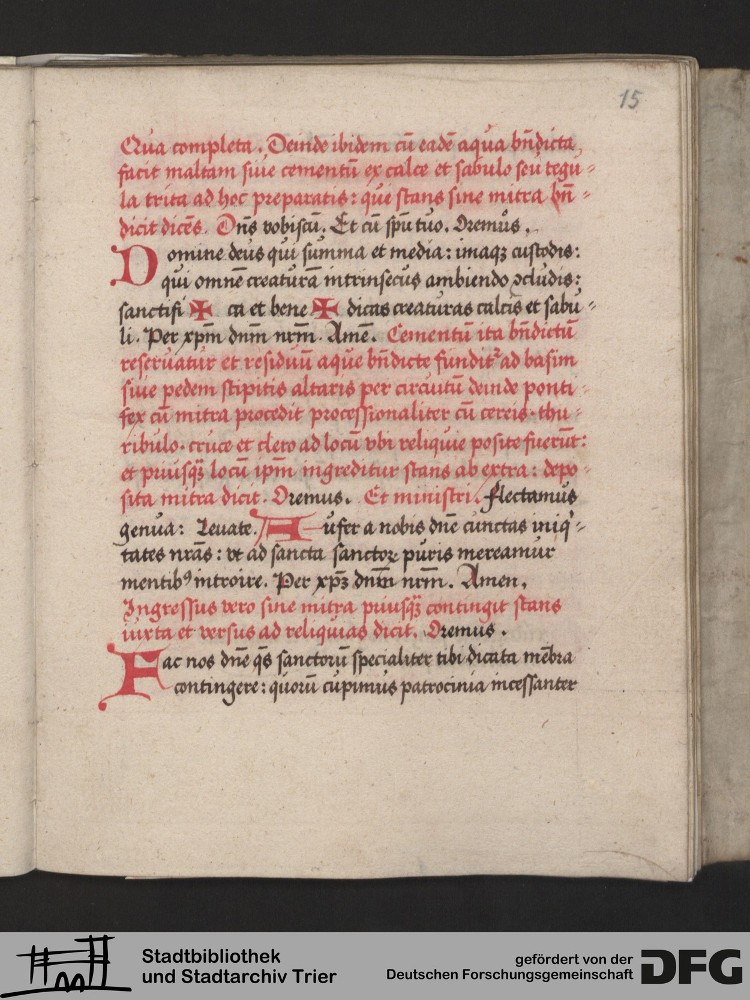 15
Qua completa. Deinde ibidem cū eadē aqua bn̄dicta
facit maltam siue cementū ex calce et sabulo seu tegu-
la trita ad hoc preparatis: que stans sine mitra bn̄-
dicit dicēs. Dn̄s vobiscū. Et cū spū tuo. Oremus.
Domine deus qui summa et media: imaqꝫ custodis:
qui omnē creaturā intrinsecus ambiendo ꝯcludis:
sanctifi ✠ ca et bene ✠ dicas creaturas calcis et sabu-
li. Per xpm̄ dnm̄ nrm̄. Amē. Cementū ita bn̄dictū
reseruatur et residuū aque bn̄dicte fundit᷑ ad basim
siue pedem stipitis altaris per circuitū deinde ponti-
fex cū mitra procedit processionaliter cū cereis. thu-
ribulo. cruce et clero ad locū vbi reliquie posite fuerūt:
et priusqꝫ̄ locū ipm̄ ingreditur stans ab extra: depo-
sita mitra dicit. Oremus. Et ministri. flectamus
genua: Leuate. Aufer a nobis dn̄e cunctas iniqͥ-
tates nr̄as: vt ad sancta sanctoꝝ puris mereamur
mentibꝰ introire. Per xpꝫ̄ dnm̄ nrm̄. Amen.
Ingressus vero sine mitra priusqꝫ̄ contingit stans
iuxta et versus ad reliquias dicit. Oremus.
Fac nos dn̄e qs̄ sanctorū specialiter tibi dicata mēbra
contingere: quorū cupimus patrocinia incessanter
Stadtbibliothek
und Stadtarchiv Trier
gefördert von der
Deutschen Forschungsgemeinschaft
DFG